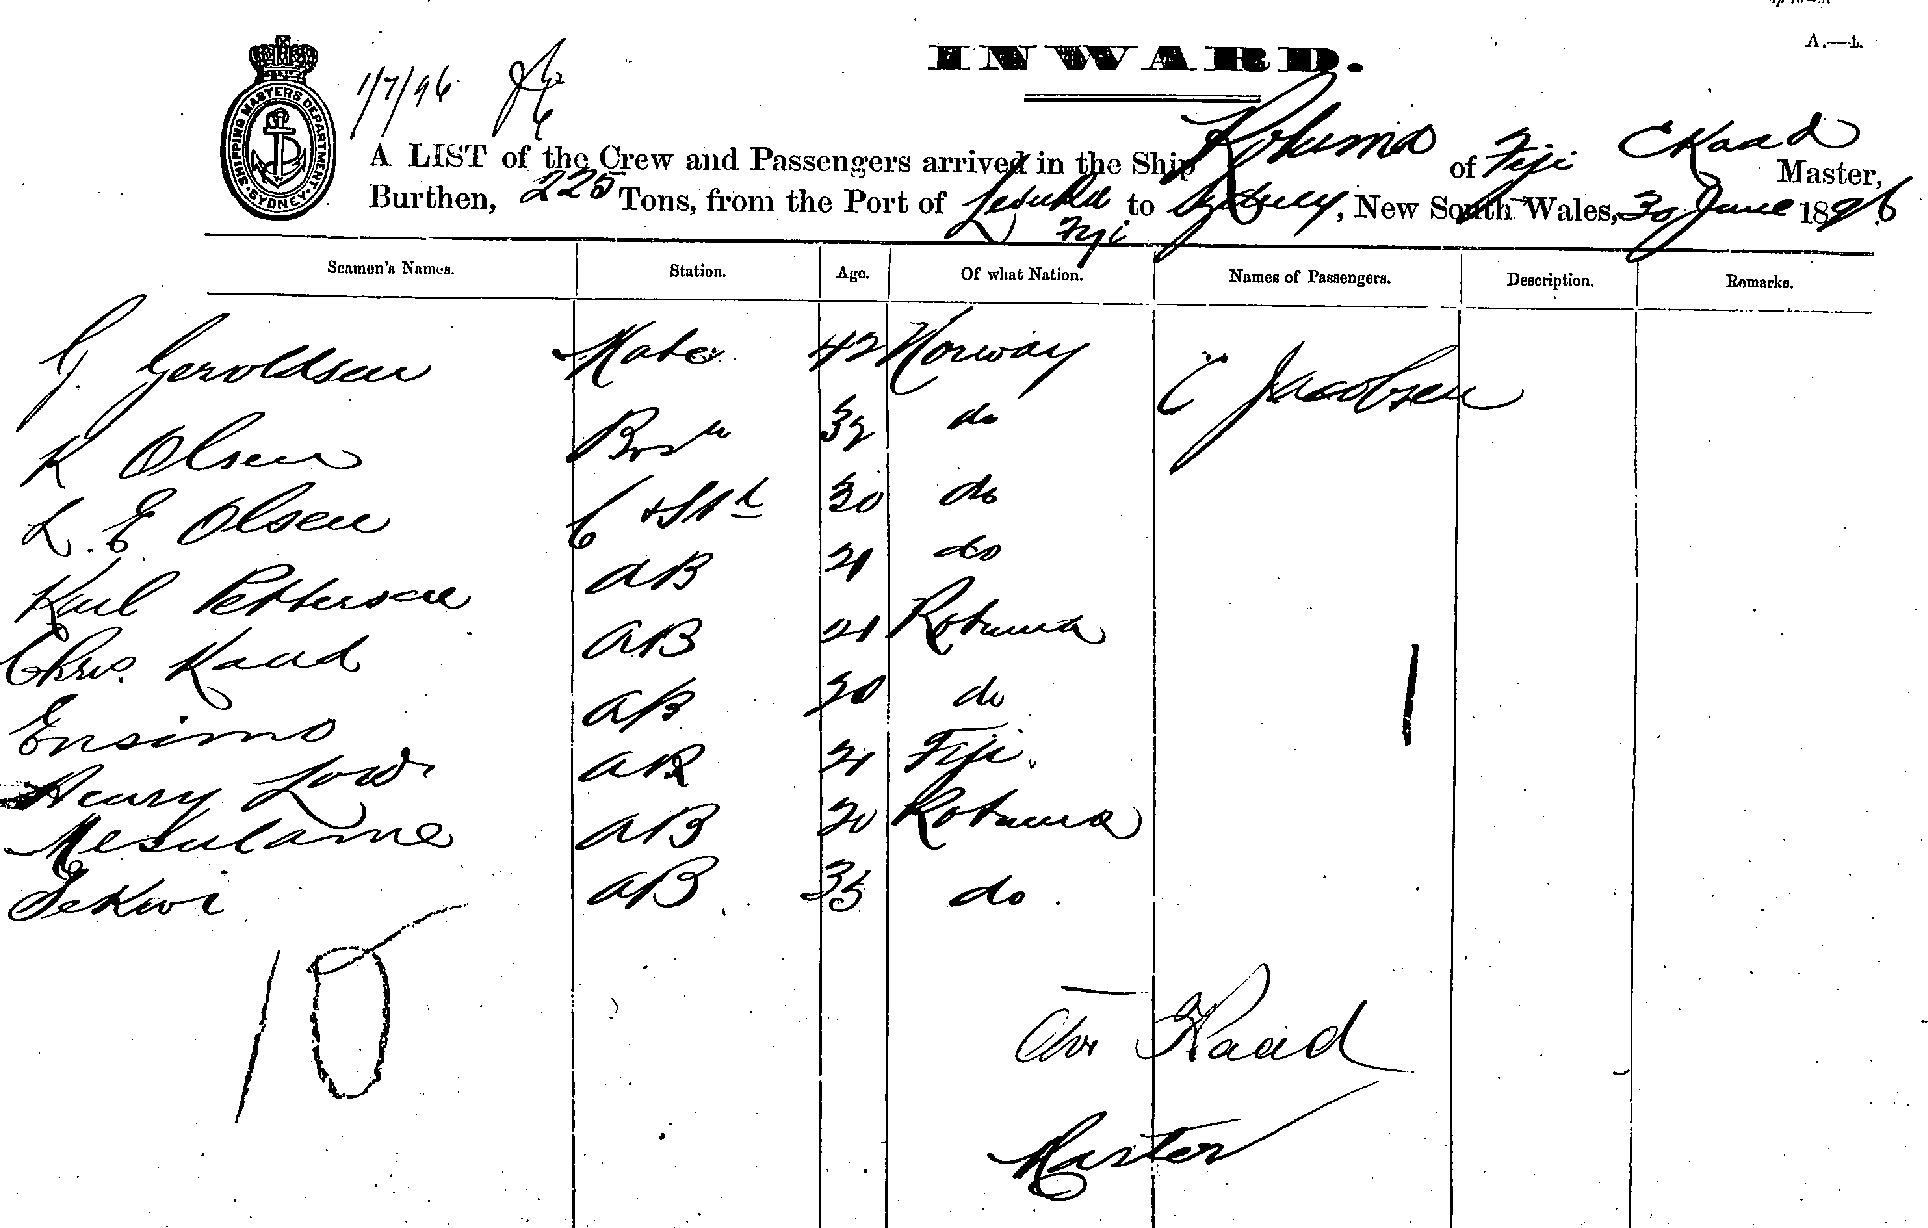 A.—1.
INWARD.
1/7/96
SHIPPING MASTERS DEPARTMENT. SYDNEY.
A LIST of the Crew and Passengers arrived in the Ship Rotuma of Fiji C Kaad Master,
Burthen, 225 Tons, from the Port of Levuka Fiji to Sydney, New South Wales, 30 June 1896
Seamen's Names. Station. Age. Of what Nation. Names of Passengers. Description. Remarks.
G. Geroldsen Mate 42 Norway C Jacobsen
K Olsen Bosn 32 do
L. E. Olsen C & Std 30 do
Karl Pettersen AB 21 do
Chris. Kaad AB 21 Rotuma
Ensimo AB 20 do
Henry Low AB 21 Fiji.
Mesulame AB 20 Rotuma
Sekwi AB 35 do.
1
10
Chr Kaad
Master